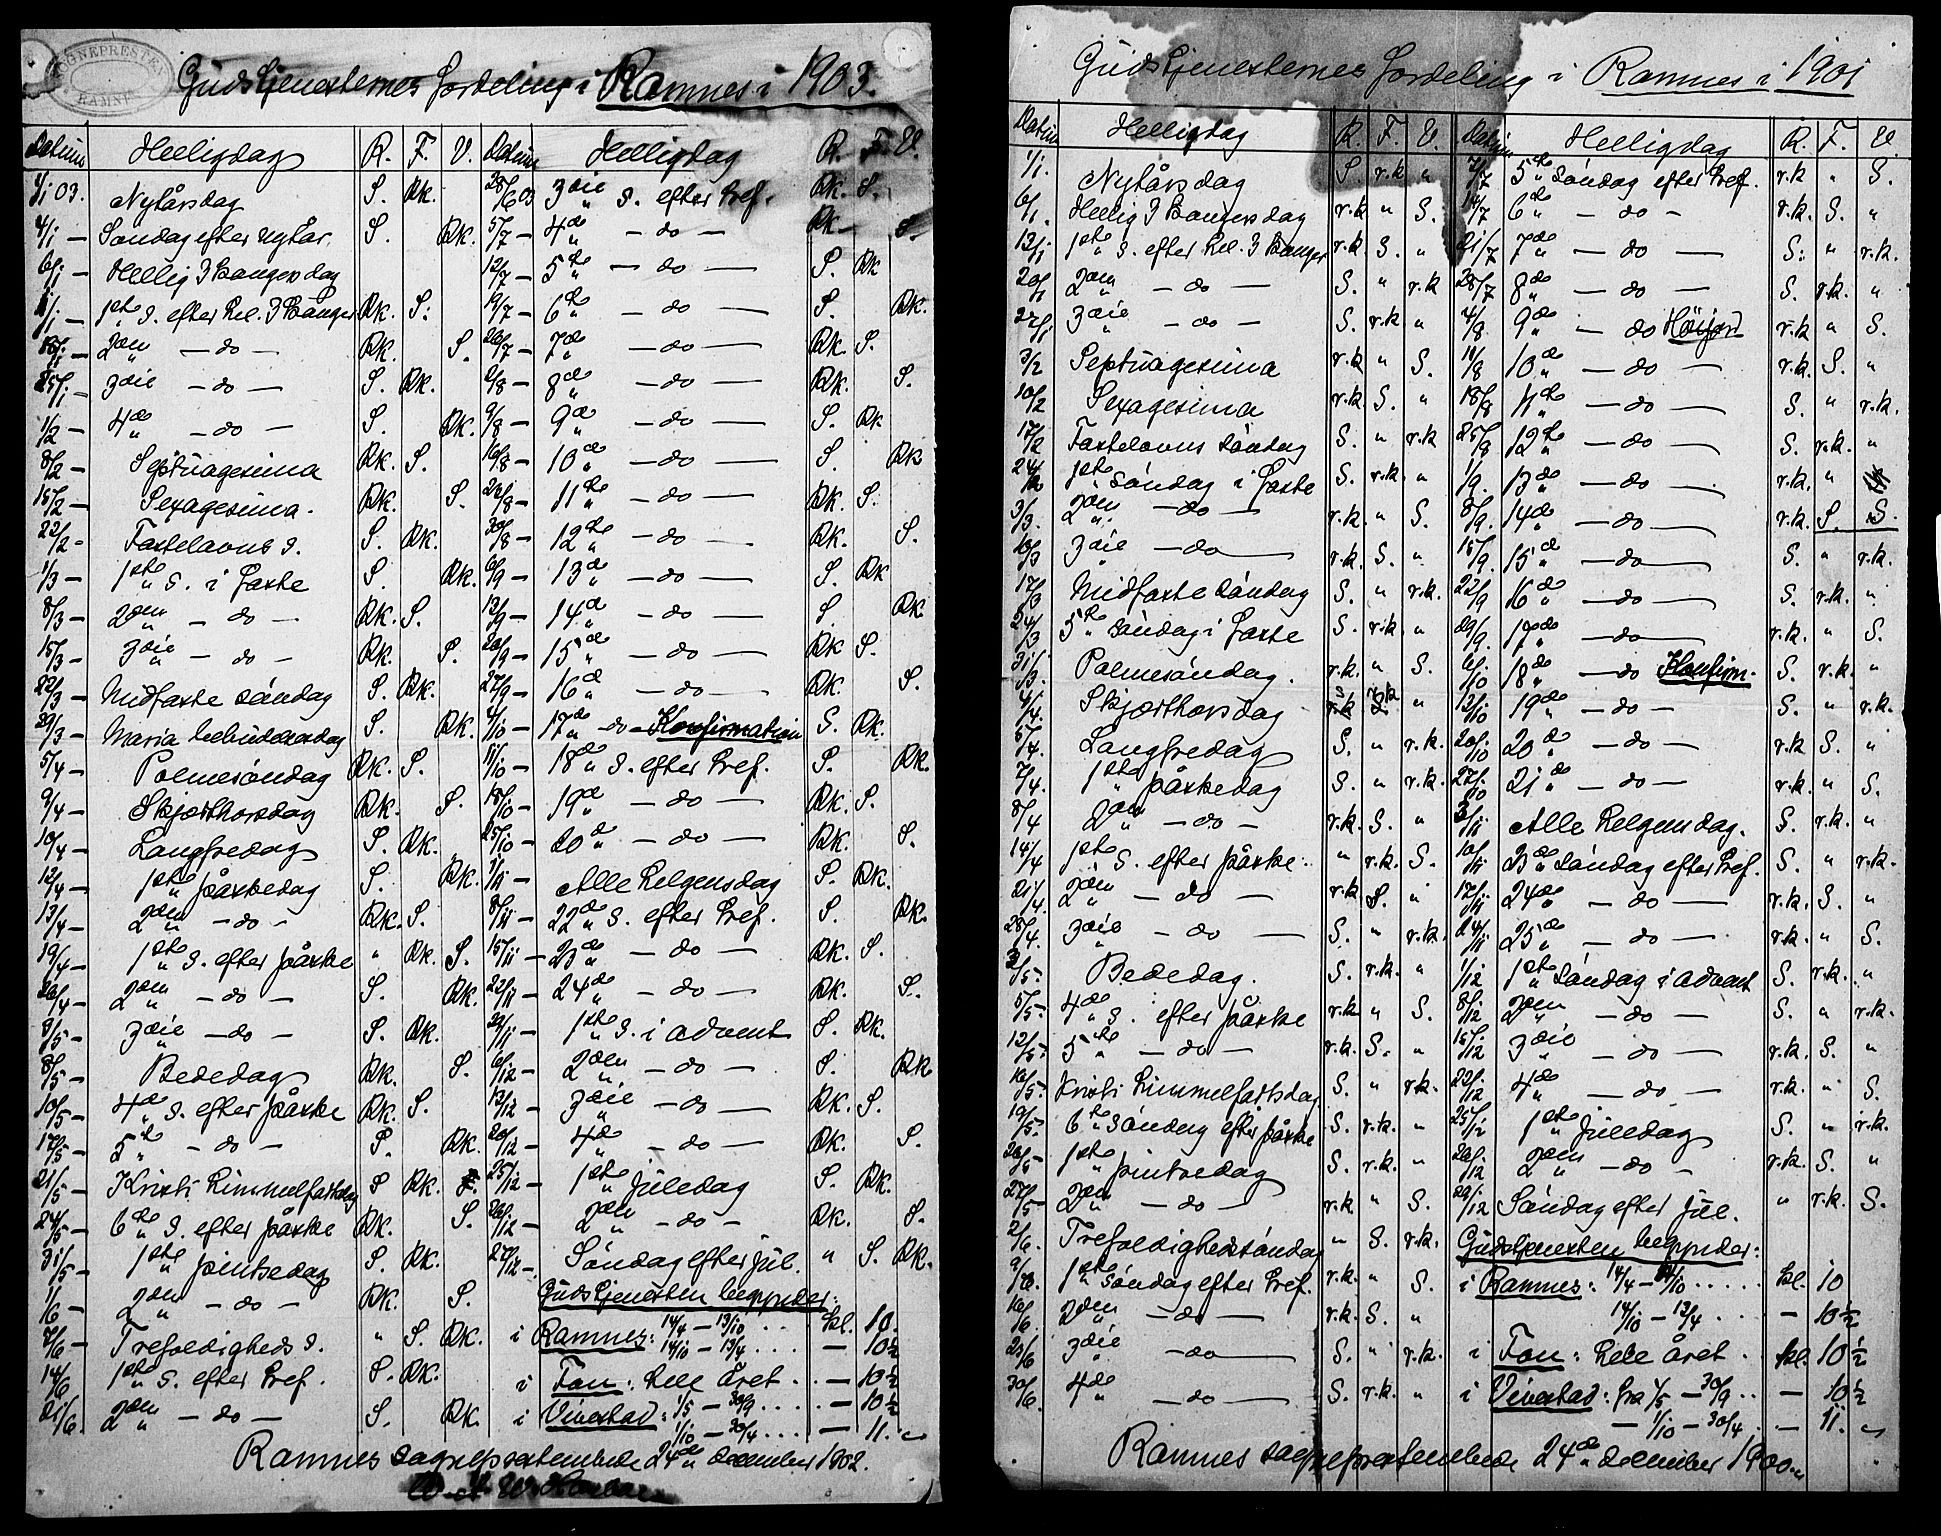 SOGNEPRESTEN
RAMNES
Gudstjenesternes fordeling i Ramnes i 1903.
Datum Helligdag R. F. V. Datum Helligdag R. F. V.
1/1 03. Nytårsdag S. Rk. 28/6 03 3die S. efter Tref. Rk. S.
4/1 — Søndag efter nytår. S. Rk. 5/7 — 4de — do — Rk — S.
6/1 — Hellig 3 Kongersdag 12/7 — 5te — do — S. Rk
11/1 — 1ste S. efter Hel. 3 Konger Rk. S. 19/7 — 6te — do — S. Rk.
18/1 — 2den — do — Rk. S. 26/7 — 7de — do — Rk. S.
25/1 — 3die — do — S. Rk. 2/8 — 8de — do — Rk. S.
1/2 — 4de — do — S. Rk. 9/8 — 9de — do — S. Rk
8/2 — Septuagesima Rk. S. 16/8 — 10de — do — S. Rk
15/2 — Sexagesima. Rk. S. 23/8 — 11te — do — Rk. S.
22/2 - Fastelavns S. S. Rk. 30/8 — 12te — do — Rk. S.
1/3 — 1ste S. i Faste S. Rk. 6/9 — 13de — do — S. Rk
8/3 — 2den — do — Rk. S. 13/9 — 14de — do — S. Rk
15/3 — 3die — do — Rk. S. 20/9 — 15de — do — Rk S.
22/3 — Midfaste søndag S. Rk. 27/9 — 16de — do — Rk. S.
29/3 — Maria bebudelsesdag S. Rk. 4/10 — 17de — do — Konfirmation S. Rk.
5/4 — Palmesøndag Rk. S. 11/10 — 18de S. efter Tref. S. Rk.
9/4 — Skjærthorsdag Rk. S. 18/10 — 19de — do — Rk. S.
10/4 — Langfredag S. Rk. 25/10 — 20de — do — Rk. S.
12/4 — 1ste påskedag S. Rk. 1/11 — Alle Helgensdag S. Rk.
13/4 — 2den — do — Rk. S. 8/11 — 22de S. efter Tref. S. Rk.
19/4 — 1ste S. efter påske " Rk. S. 15/11 — 23de — do — Rk. S.
26/4 — 2den — do — S. Rk. 22/11 — 24de — do — Rk. S.
3/5 — 3die — do — S. Rk. 29/11 — 1ste S. i advent S. Rk.
8/5 — Bededag Rk. S. 6/12 — 2den — do — S. Rk
10/5 — 4de S. efter påske Rk. S. 13/12 — 3die — do — Rk. S.
17/5 — 5te — do — S. Rk. 20/12 — 4de — do — Rk. S.
21/5 — Kristi himmelfartsdag S Rk. 25/12 — 1ste juledag S. Rk.
24/5 — 6te S. efter påske Rk. S. 26/12 — 2den — do — Rk. S.
31/5 — 1ste pintsedag S. Rk. 27/12 — Søndag efter jul. " S. Rk.
1/6 — 2den — do — Rk. S. Gudstjenesten begynder:
7/6 — Trefoldigheds S. " S. Rk. i Ramnes: 14/4 — 13/10 . . . kl. 10.
14/6 1ste S. efter Tref. S. Rk. 14/10 — 13/4 . . . . — 10½
i Fon: hele året . . — 10½
21/6. 2den — do — S. Rk. i Vivestad: 1/5 — 30/9 . . . . — 10½
1/10 — 30/4 . . . . — 11.
Ramnes sogneprestembede 24de december 1902.
Gudstjenesternes fordeling i Ramnes i 1901
Datum Helligdag R. F. V. Datum Helligdag R. F. V.
1/1. Nytårsdag S r.k " 7/7 5te Søndag efter Tref. r.k " S.
6/1. Hellig 3 Kongersdag r.k " S. 14/7 6te — do — r.k. S. "
13/1 1ste S. efter Hel. 3 Konger r.k. S. " 21/7 7de — do — S. " r.k.
20/1 2den — do — S. " r.k 28/7 8de — do — S. r.k. "
27/1 3die — do — S. r.k " 4/8 9de — do Høijord r.k " S.
3/2 Septuagesima r.k " S. 11/8 10de — do — r.k. S. "
10/2 Sexagesima r.k. S. " 18/8 11te — do — S. " r.k.
17/2 Fastelavns søndag S. " r.k 25/8 12te — do — S. r.k. "
24/2 1ste Søndag i Faste S. r.k. " 1/9. 13de — do — r.k. "
3/3. 2den — do — r.k. " S. 8/9. 14de — do — r.k. S. S.
10/3 3die — do — r.k. S. " 15/9. 15de — do — S. " r.k.
17/3 Midfaste søndag S. " r.k. 22/9 16de — do — S. r.k. "
24/3 5te søndag i Faste S. r.k. " 29/9. 17de — do — r.k. " S.
31/3. Palmesøndag. r.k. " S. 6/10 18de — do Konfirm. S. r.k. "
4/4. Skjærthorsdag S r.k " 13/10 19de — do — S. " r.k.
5/4. Langfredag S. " r.k. 20/10 20de — do — r.k S. "
7/4. 1ste påskedag S. " r.k. 27/10 21de — do — r.k. " S.
8/4 2den — do — r.k. S. " 3/11 Alle helgensdag. S. r.k. "
14/4 1ste S. efter påske. " r.k. S. 10/11 23de Søndag efter Tref. S. " r.k.
21/4. 2den — do — r.k S. " 17/11 24de — do — r.k. S. "
28/4. 3die — do — S. " r.k. 24/11 25de — do — r.k. " S.
3/5. Bededag. S. r.k. " 1/12 1ste Søndag i advent S. r.k. "
5/5. 4de S. efter påske r.k " S. 8/12 2den — do — S. " r.k.
12/5. 5te — do — r.k. S. " 15/12 3die — do — r.k. S. "
16/5. Kristi himmelfartsdag S. " r.k. 22/12 4de — do — r.k. " S.
19/5. 6te Søndag efter påske S. r.k. " 25/12 1ste juledag S. " r.k.
26/5 1ste pintsedag S. r.k. " 26/12 2den — do — r.k. S. "
27/5 2den — do — r.k. " S. 29/12 Søndag efter jul. " r.k. S.
2/6. Trefoldighedssøndag " S. r.k. Gudstjenesten begynder:
9/6. 1ste Søndag efter Tref. r.k. " S. i Ramnes: 14/4 — 14/10 . . . . . kl. 10
16/6. 2den — do — r.k S. " 14/10 — 13/4 . . . — 10½
23/6 3die — do — S. " r.k. i Fon: hele året . kl. 10½
30/6. 4de — do — S. r.k. " i Vivestad: fra 1/5 — 30/9 . . — 10½
— 1/10 — 30/4 . . . — 11.
Ramnes sogneprestembede 24de december 1900.